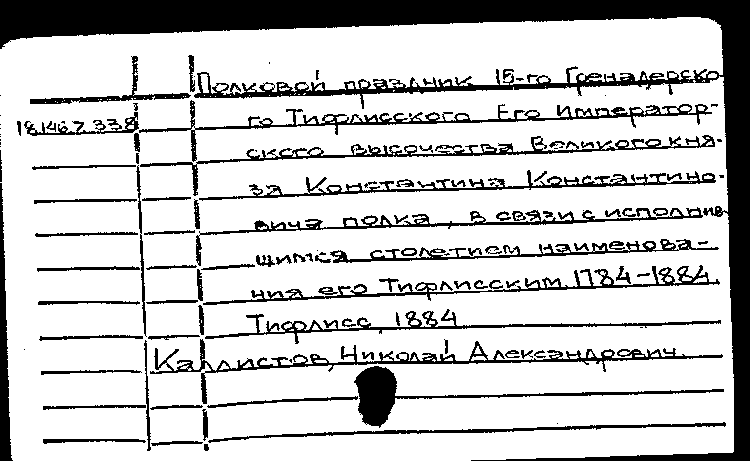 Полковой праздник 15-го Гренадерско-
18.146.7.338 го Тифлисского Его Император-
ского высочества Великого кня-
зя Константина Константино-
вича полка, в связи с исполнив-
шимся столетием наименова-
ния его Тифлисским. 1784-1884.
Тифлисс, 1884
Каллистов, Николай Александрович.